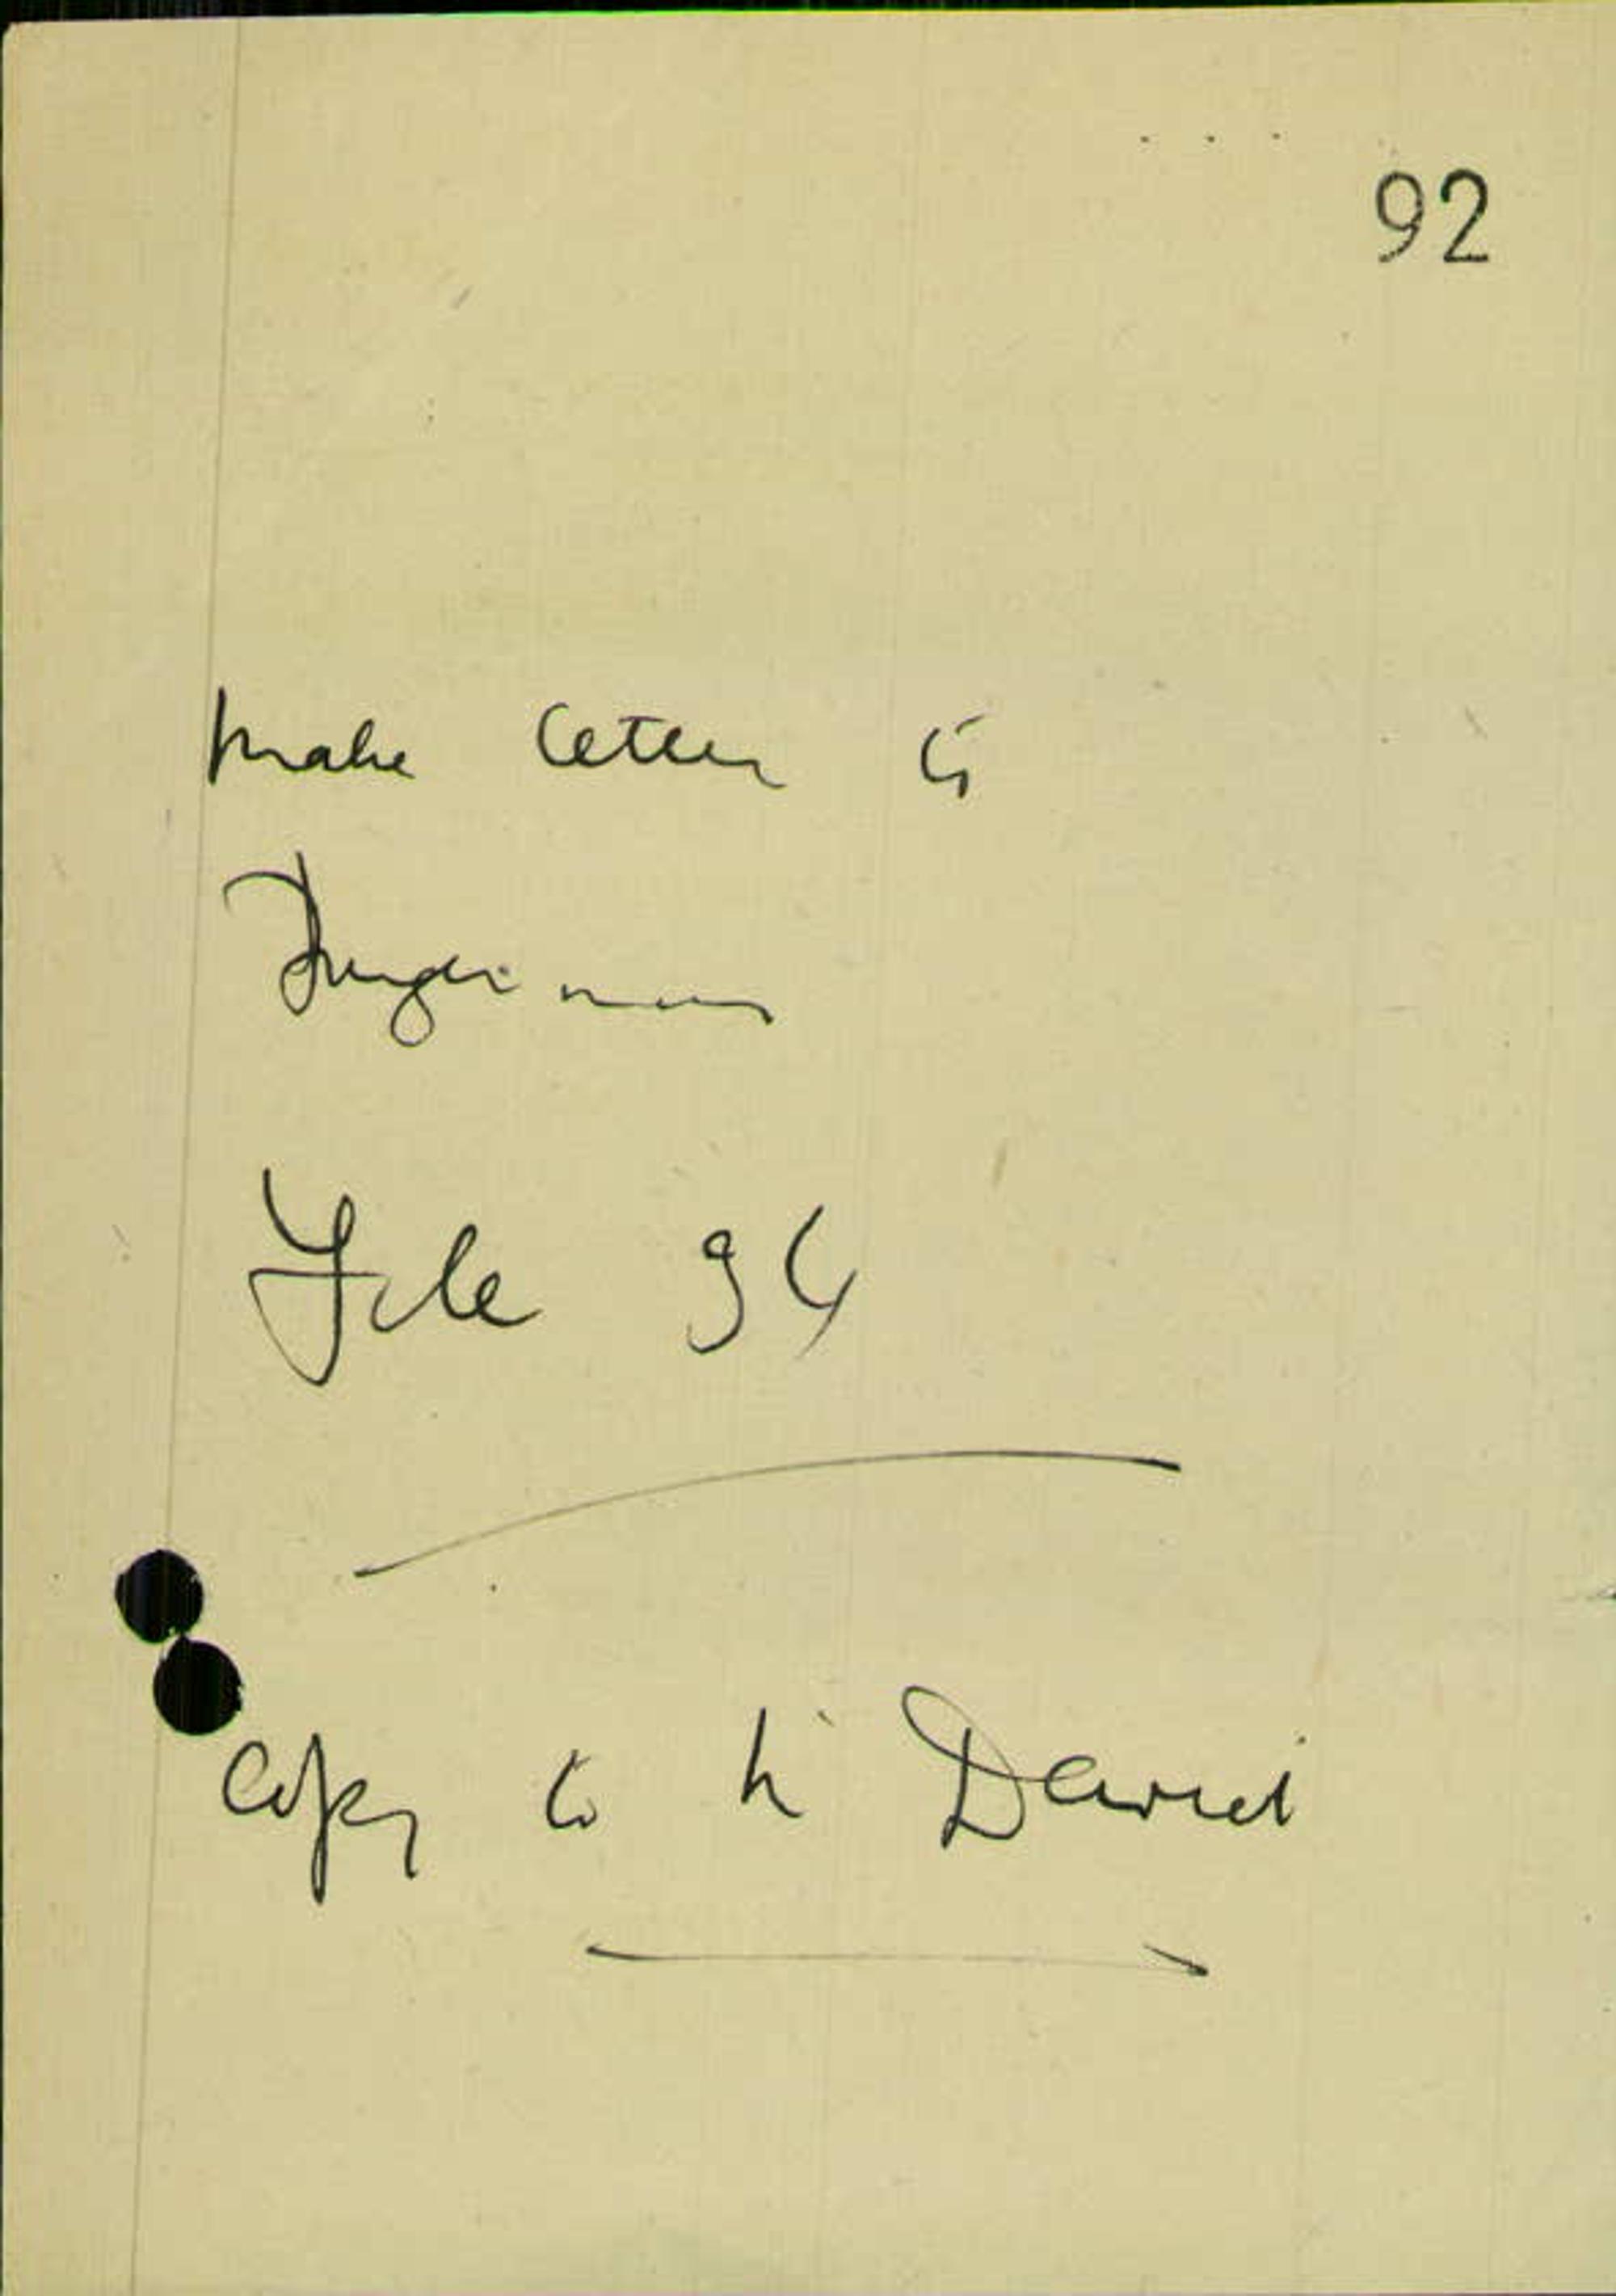 92
Make letter to
File 94
Copy to Mr David